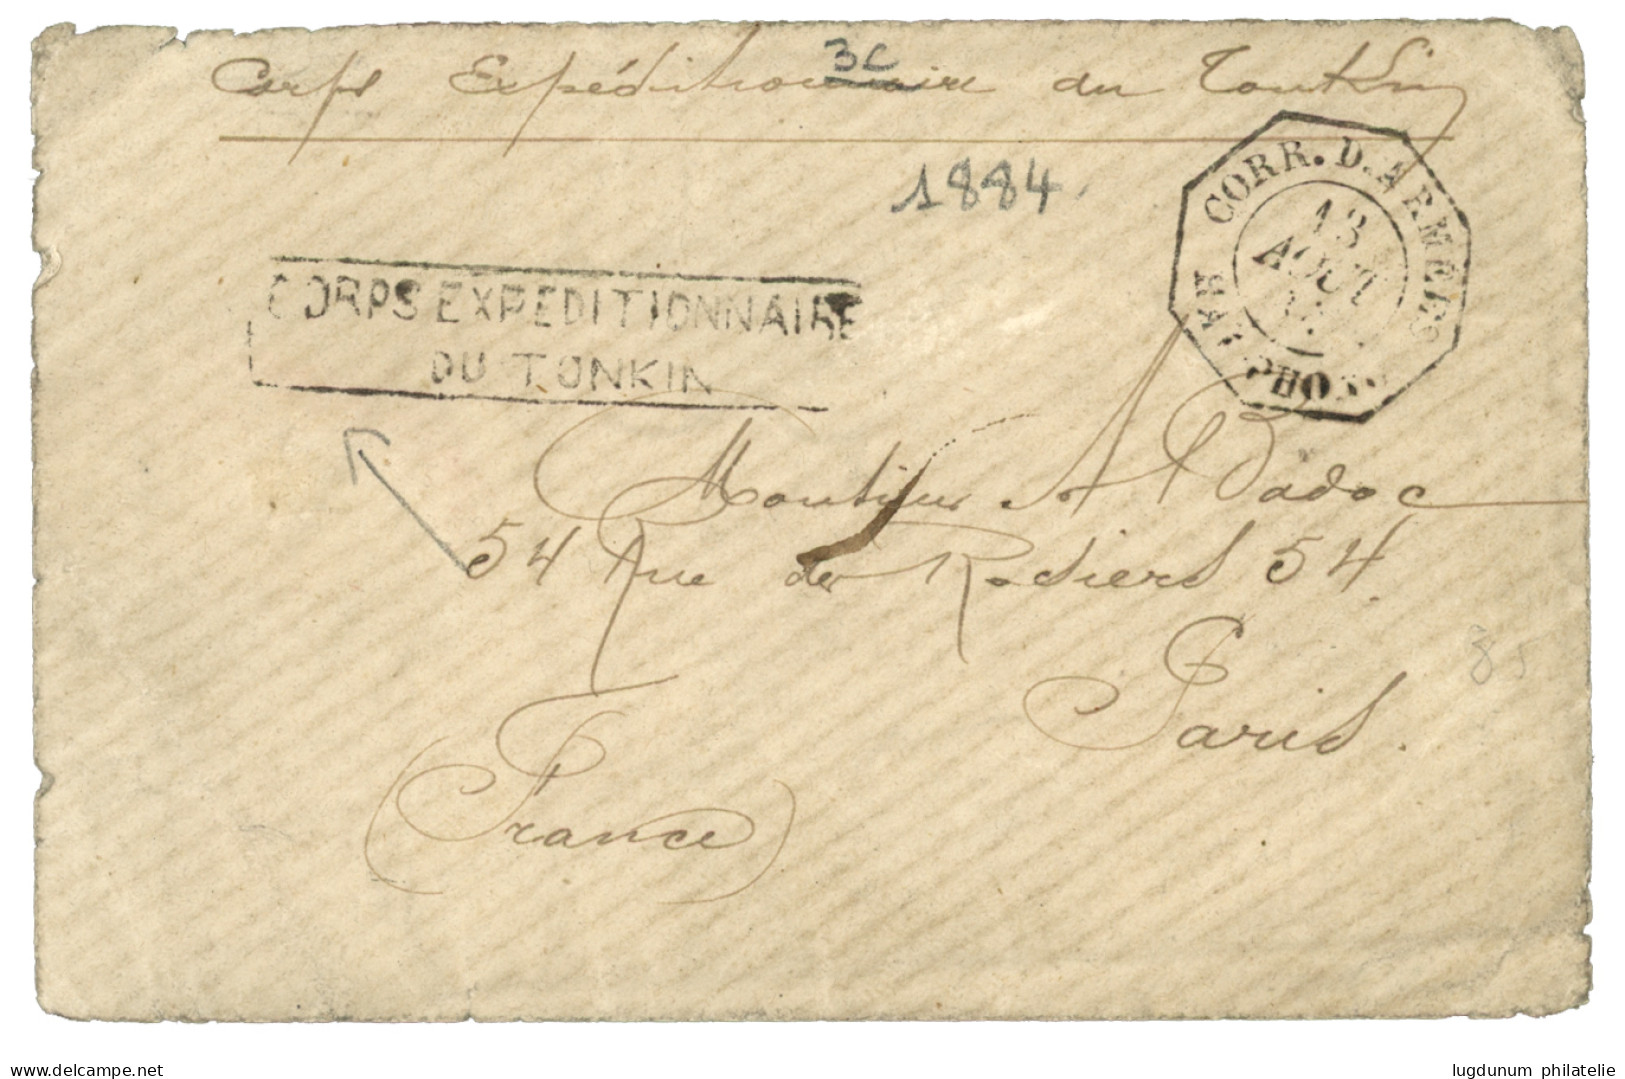 Corps Expéditionnaire du Tonkin
3C
1884
CORR. D. ARMÉES
13
AOUT
CORPS EXPEDITIONNAIRE
DU TONKIN
Monsieur A Vadoc
54 Rue des Rosiers 54
Paris.
(France)
www.delcampe.net
lugdunum philatelie